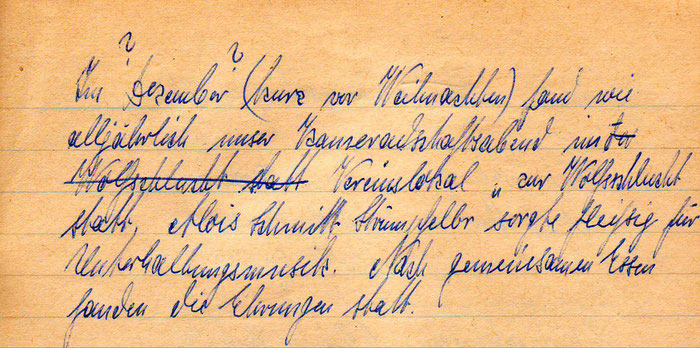 ? ?
Im Dezember (kurz vor Weihnachten) fand wie
alljährlich unser Kameradschaftsabend im
Wolfschlucht statt Vereinslokal „ zur Wolfsschlucht
statt. Alois Schmitt sorgte fleißig für
Unterhaltungsmusik. Nach gemeinsamen Essen
fanden die Ehrungen statt.